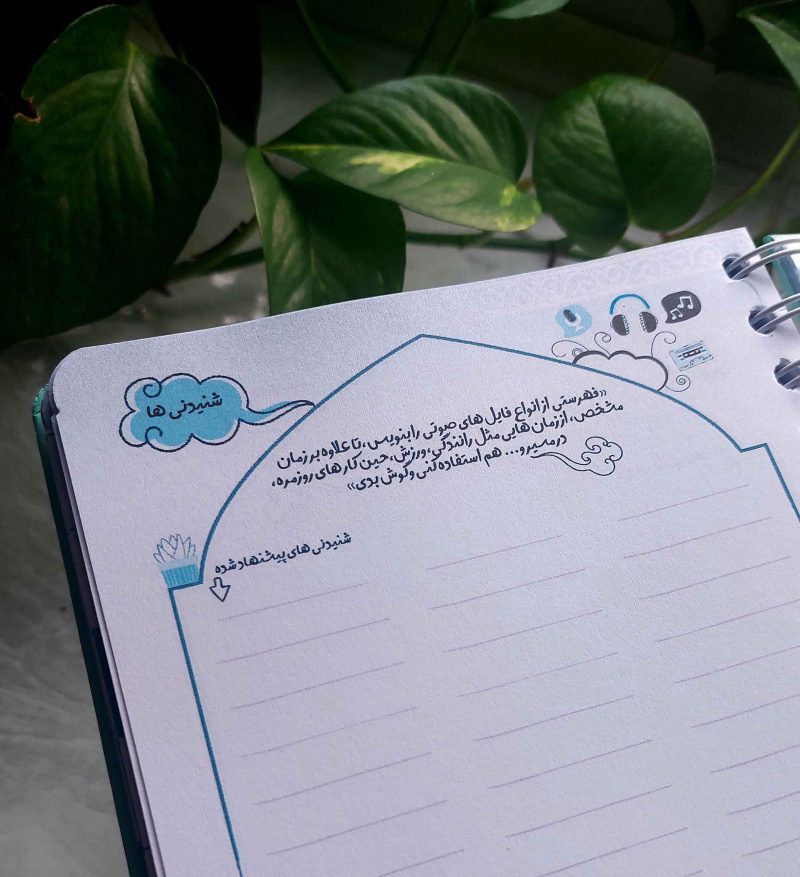 شنیدنی ها
«فهرستی از انواع فایل های صوتی را بنویس، تا علاوه بر زمان
مشخص، از زمان هایی مثل رانندگی، ورزش، حین کار های روزمره،
در مسیر و... هم استفاده کنی و گوش بدی»
شنیدنی های پیشنهاد شده